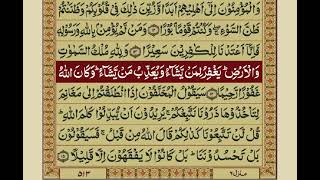 وَالْمُؤْمِنُوْنَ اِلٰٓى اَهْلِيْهِمْ اَبَدًا وَّزُيِّنَ ذٰلِكَ فِيْ قُلُوْبِكُمْ وَظَنَنْتُمْ
ظَنَّ السَّوْءِ ۖ وَكُنْتُمْ قَوْمًۢا بُوْرًا ﴿١٢﴾ وَمَنْ لَّمْ يُؤْمِنْۢ بِاللّٰهِ وَرَسُوْلِهٖ
فَاِنَّآ اَعْتَدْنَا لِلْكٰفِرِيْنَ سَعِيْرًا ﴿١٣﴾ وَلِلّٰهِ مُلْكُ السَّمٰوٰتِ
وَالْاَرْضِ ؕ يَغْفِرُ لِمَنْ يَّشَآءُ وَيُعَذِّبُ مَنْ يَّشَآءُ ؕ وَكَانَ اللّٰهُ
غَفُوْرًا رَّحِيْمًا ﴿١٤﴾ سَيَقُوْلُ الْمُخَلَّفُوْنَ اِذَا انْطَلَقْتُمْ اِلٰى مَغَانِمَ
لِتَاْخُذُوْهَا ذَرُوْنَا نَتَّبِعْكُمْ ۚ يُرِيْدُوْنَ اَنْ يُّبَدِّلُوْا كَلٰمَ اللّٰهِ ؕ
قُلْ لَّنْ تَتَّبِعُوْنَا كَذٰلِكُمْ قَالَ اللّٰهُ مِنْ قَبْلُ ۚ فَسَيَقُوْلُوْنَ
بَلْ تَحْسُدُوْنَنَا ؕ بَلْ كَانُوْا لَا يَفْقَهُوْنَ اِلَّا قَلِيْلًا ﴿١٥﴾
منزل ٦
٥١٣